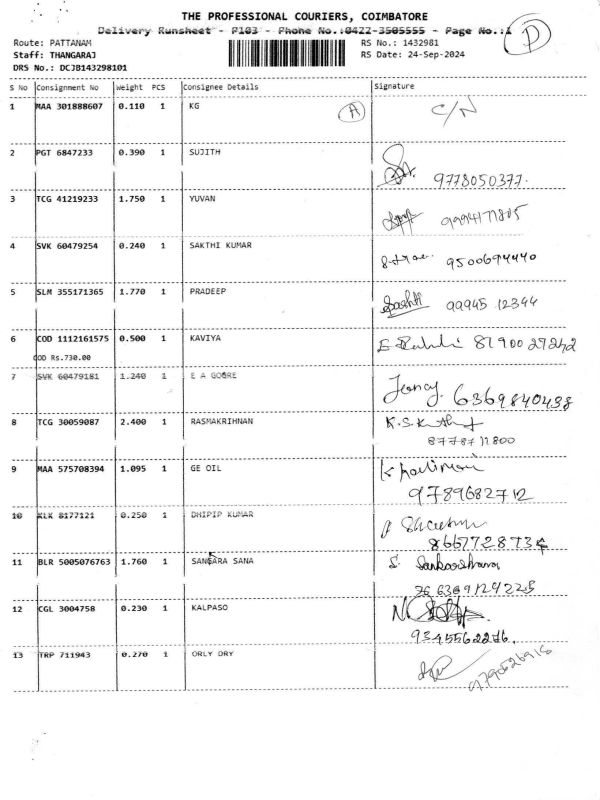 THE PROFESSIONAL COURIERS, COIMBATORE
Delivery Runsheet - P103 - Phone No.:0422-3505555 - Page No.:1
D
Route: PATTANAM
RS No.: 1432981
Staff: THANGARAJ
RS Date: 24-Sep-2024
DRS No.: DCJB143298101
S No Consignment No Weight PCS Consignee Details Signature
1 MAA 301888607 0.110 1 KG A C/N
2 PGT 6847233 0.390 1 SUJITH
9778050377.
3 TCG 41219233 1.750 1 YUVAN
9994171805
4 SVK 60479254 0.240 1 SAKTHI KUMAR
9500694440
5 SLM 355171365 1.770 1 PRADEEP
99945 12344
6 COD 1112161575 0.500 1 KAVIYA
81900 27242
COD Rs.730.00
7 SVK 60479181 1.240 1 E A GOORE
6369840438
8 TCG 30059087 2.400 1 RASMAKRIHNAN
8778711800
9 MAA 575708394 1.095 1 GE OIL
9789682712
10 KLK 8177121 0.250 1 DHIPIP KUMAR
11 BLR 5005076763 1.760 1 SANGARA SANA
S.
12 CGL 3004758 0.230 1 KALPASO
9345562276.
13 TRP 711943 0.270 1 ORLY DRY
9790526918